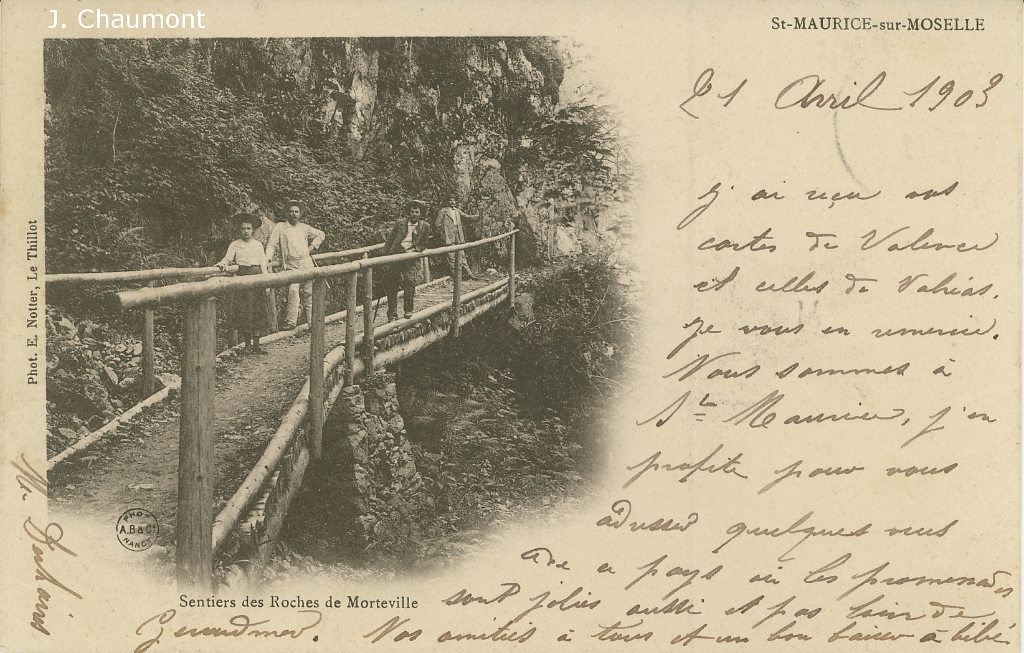 J. Chaumont
St-MAURICE-sur-MOSELLE
21 Avril 1903
j'ai reçu vos
cartes de Valence
et celles de
Je vous en remercie.
Nous sommes à
St Maurice, j'en
profite pour vous
adresser quelques vues
de ce pays où les promenades
sont jolies aussi et pas loin de
Gerardmer. Nos amitiés à tous et un bon baiser à bébé
Sentiers des Roches de Morteville
Phot. E. Notter, Le Thillot
PHOT
A.B & Cie
NANCY
Mr